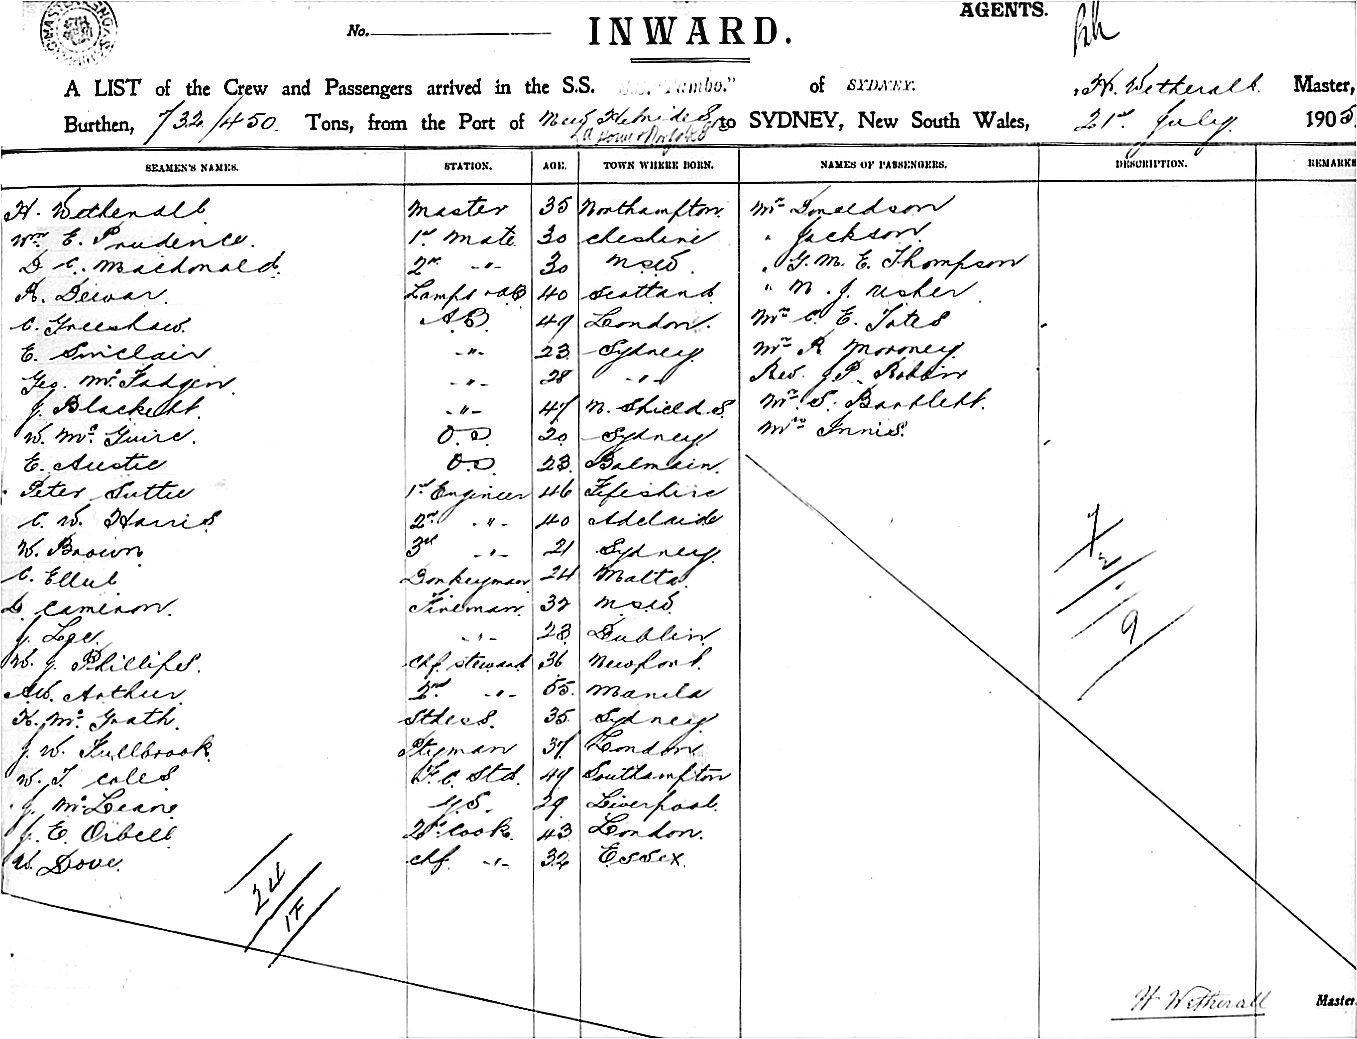 AGENTS.
No.
INWARD.
A LIST of the Crew and Passengers arrived in the S.S. "Tambo." of SYDNEY. H. Wetherall Master,
Burthen, 732/450 Tons, from the Port of New Hebrides to SYDNEY, New South Wales, 21st July 1905
Ld Howe & Norfolk Is
SEAMEN'S NAMES. STATION. AGE. TOWN WHERE BORN. NAMES OF PASSENGERS. DESCRIPTION. REMARK
H. Wetherall Master 35 Northampton. Mr Donaldson
Wm E. Prudence. 1st Mate 30 Cheshire " Jackson.
D. C. Macdonald. 2nd -"- 30 NSW. " G. M. E. Thompson
R. Dewar. Lamps & AB 40 Scotland. " M. J. Usher
C. Greeshaw. AB. 49 London. Mrs C. E. Yates
E. Sinclair -"- 23 Sydney. Mr R Moroney
Geo. McFadgen -"- 28 -"- Rev. J P. Robin
J. Blackett. -"- 47 N. Shields Mr S. Bartlett.
W. McGuire. O.S 20 Sydney Mrs Innis.
E. Austie OS 23 Balmain.
Peter Suttie 1st Engineer 46 Fifeshire
C. W. Harris 2nd -"- 40 Adelaide
W. Brown 3rd -"- 21 Sydney.
C. Ellul Donkeyman 24 Malta.
D. Cameron. Fireman. 32 NSW
J. Lee. -"- 23 Dublin
W. J. Phillips. Chf. Steward 36 Newport.
AW. Arthur 2nd -"- 55. Manila
K. McGrath. Stdess. 35. Sydney
J. W. Fullbrook Ptryman 37 London
W. T. Coles F.C. Std. 49 Southampton
J. McLeane G.S. 29 Liverpool.
J. E. Orbell 2nd Cook. 43 London.
W. Dove. Chf. -"- 32 Essex.
7
2
9
24
1F
H Wetherall Master.